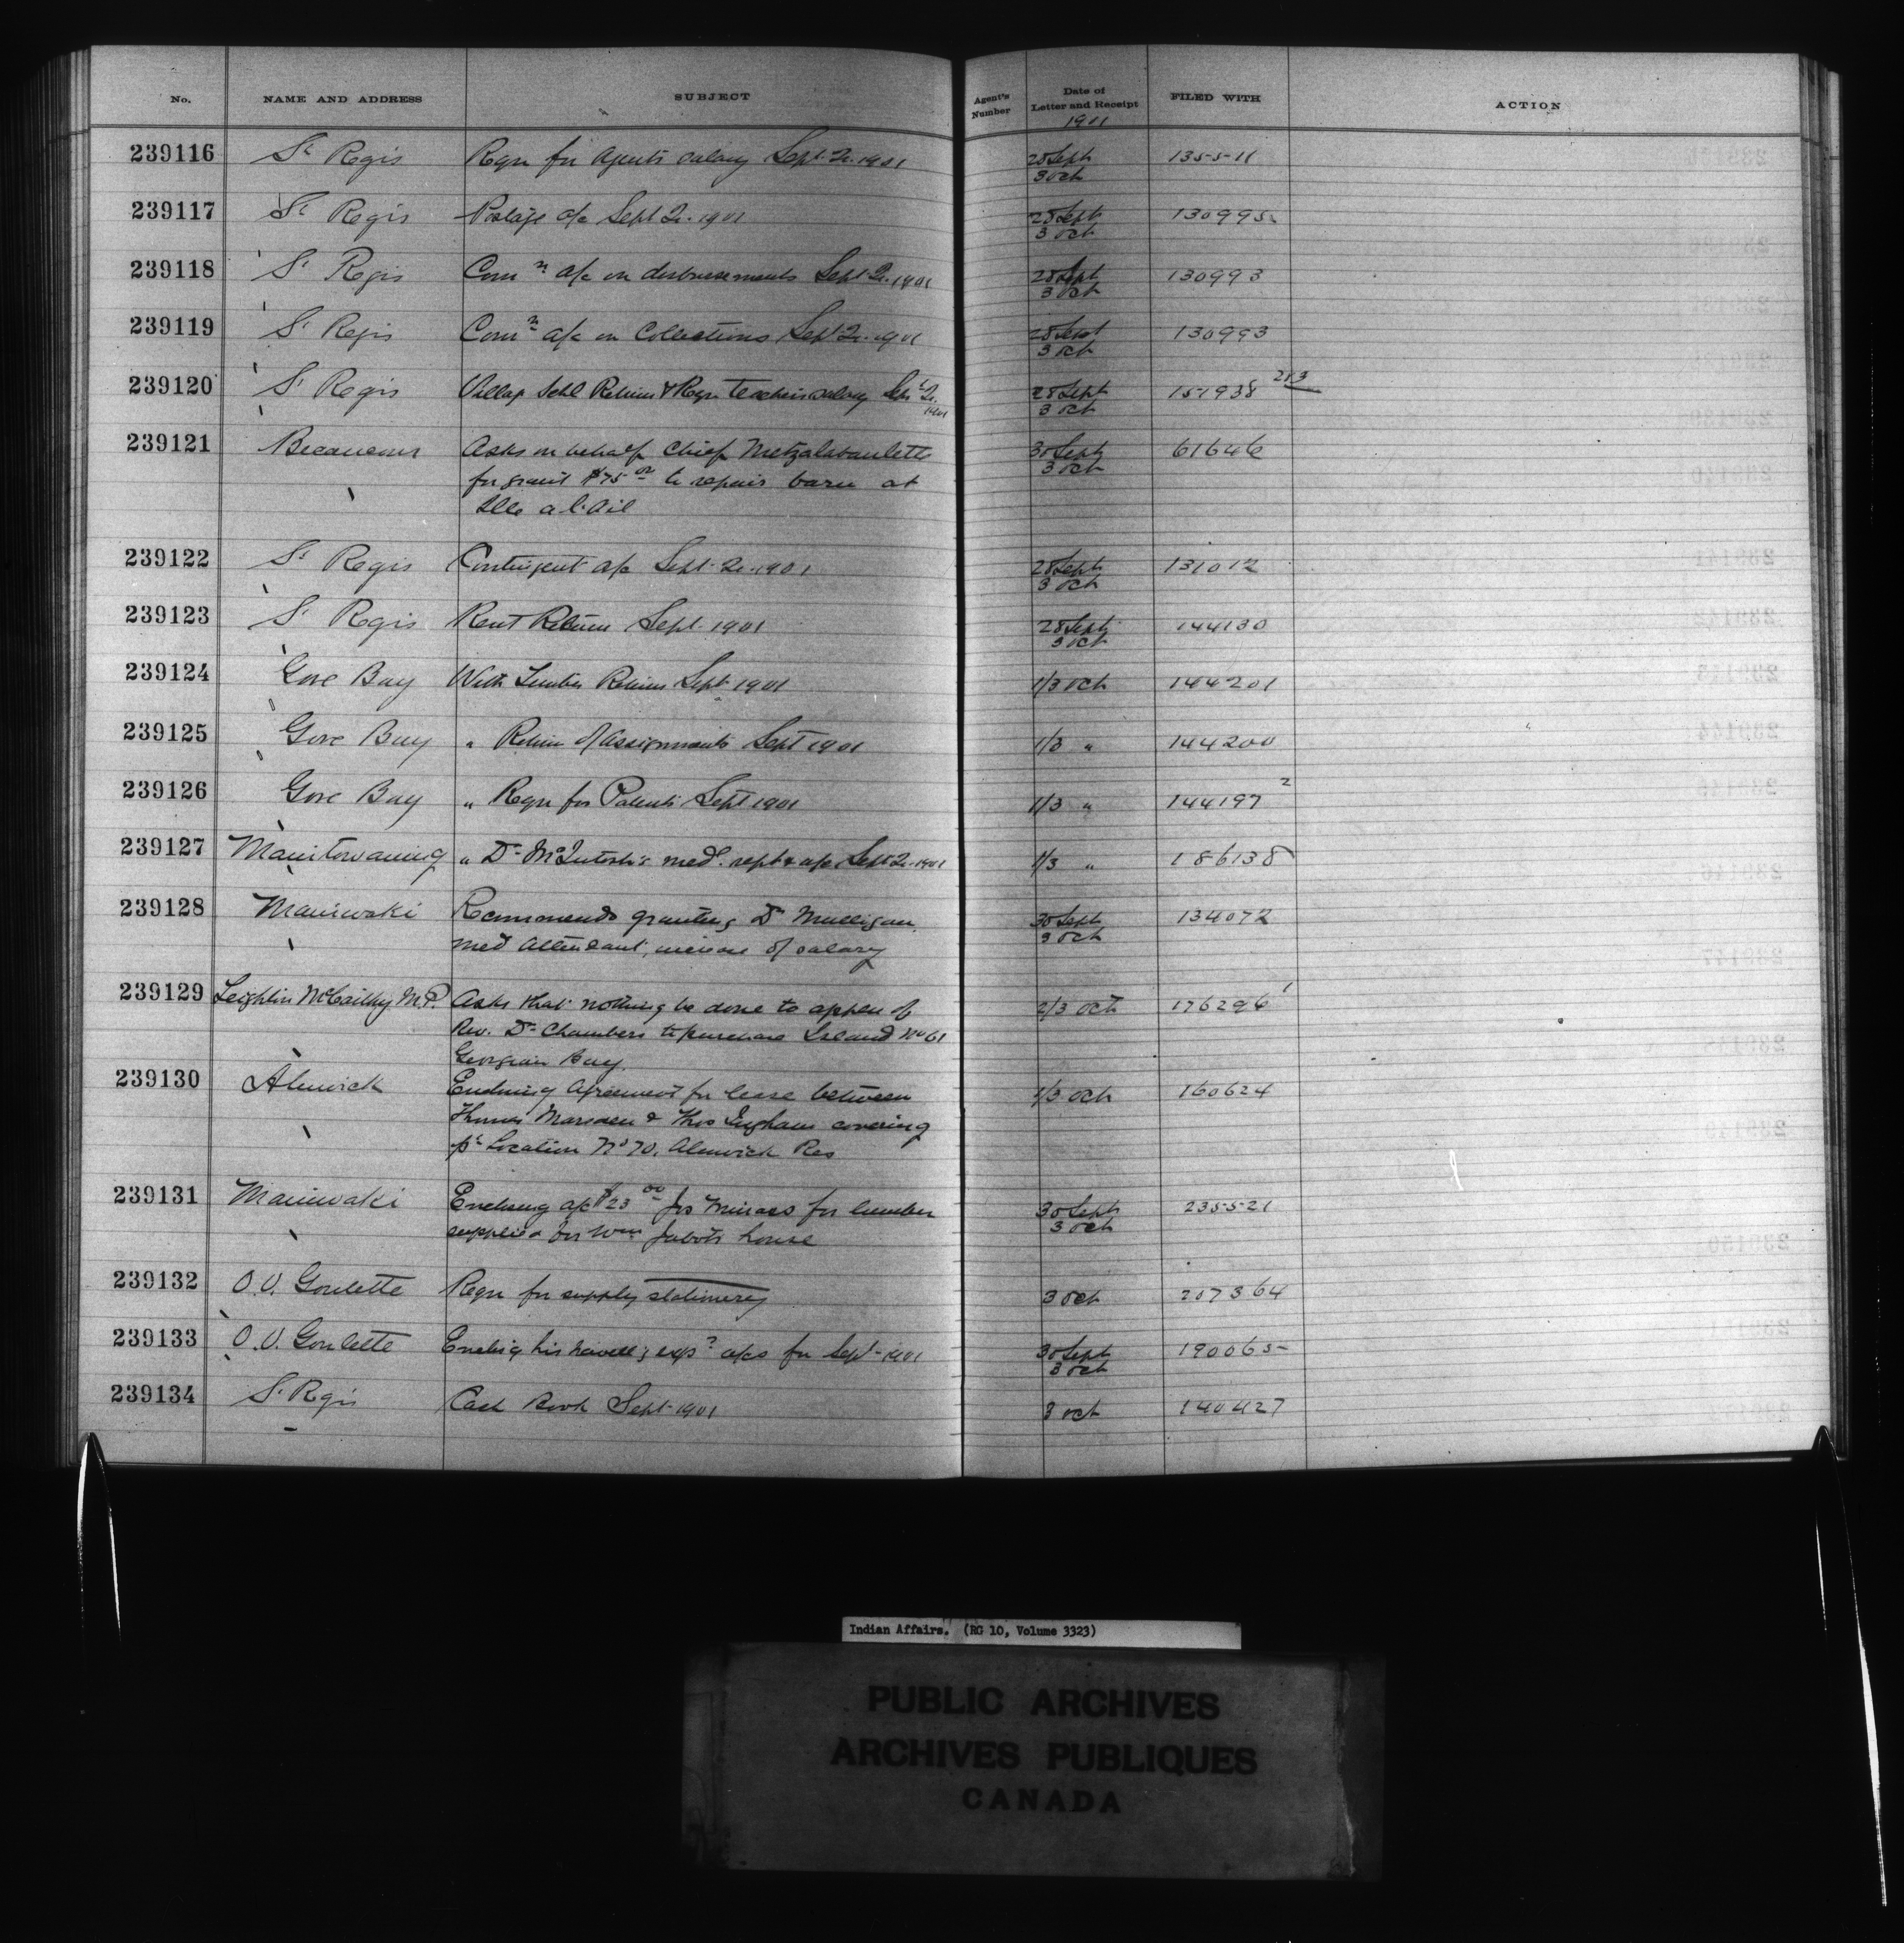 No. NAME AND ADDRESS SUBJECT Agent's Number Date of Letter and Receipt FILED WITH ACTION
1901
239116 St Regis Reqn for Agents salary Sept. Qr. 1901 28 Sept 135511
3 Oct
239117 St Regis Postage a/c Sept Qr. 1901 28 Sept 130995
3 Oct
239118 St Regis Comn a/c on disbursements Sept Qr. 1901 28 Sept 130993
3 Oct
239119 St Regis Comn a/c on Collections Sept Qr. 1901 28 Sept 130993
3 Oct
239120 St Regis Village Schl Return & Reqn teachers salary Sept Qr. 1901 28 Sept 151938 283
3 Oct
239121 Becancour Asks on behalf Chief Metzalabanlette 30 Sept 61646
for grant $75.00 to repair barn at 3 Oct
Ille a l'Ail
239122 St Regis Contingent a/c Sept. Qr. 1901 28 Sept 131012
3 Oct
239123 St Regis Rent Return Sept. 1901 28 Sept 144130
3 Oct
239124 Gore Bay With Timber Return Sept 1901 1/3 Oct 144201
239125 Gore Bay " Return of Assignments Sept 1901 1/3 " 144200
239126 Gore Bay " Reqn for Patents Sept 1901 1/3 " 144197 2
239127 Manitowaning " Dr McIntosh's med. rept & a/c Sept Qr. 1901 1/3 " 186138
239128 Maniwaki Recommends granting Dr Mulligan 30 Sept 134072
med attendant, increase of salary 3 Oct
239129 Leighton McCarthy M.P. Asks that nothing be done to appln of 2/3 Oct 176296 1
Rev. Dr Chambers to purchase Island No 61
Georgian Bay
239130 Alnwick Enclosing Agreement for lease between 1/3 Oct 160624
Thomas Marsden & Thos Ingham covering
pt Location No 70, Alnwick Res
239131 Maniwaki Enclosing a/c $23.00 for lumber 30 Sept 235521
supplied for Wm Jabots house 3 Oct
239132 O.V. Goulette Reqn for supply stationery 3 Oct 207364
239133 O.V. Goulette Enclsg his travellg exps a/cs for Sept. 1901 30 Sept 190065
3 Oct
239134 St Regis Cash Book Sept. 1901 3 Oct 140427
Indian Affairs. (RG 10, Volume 3323)
PUBLIC ARCHIVES
ARCHIVES PUBLIQUES
CANADA